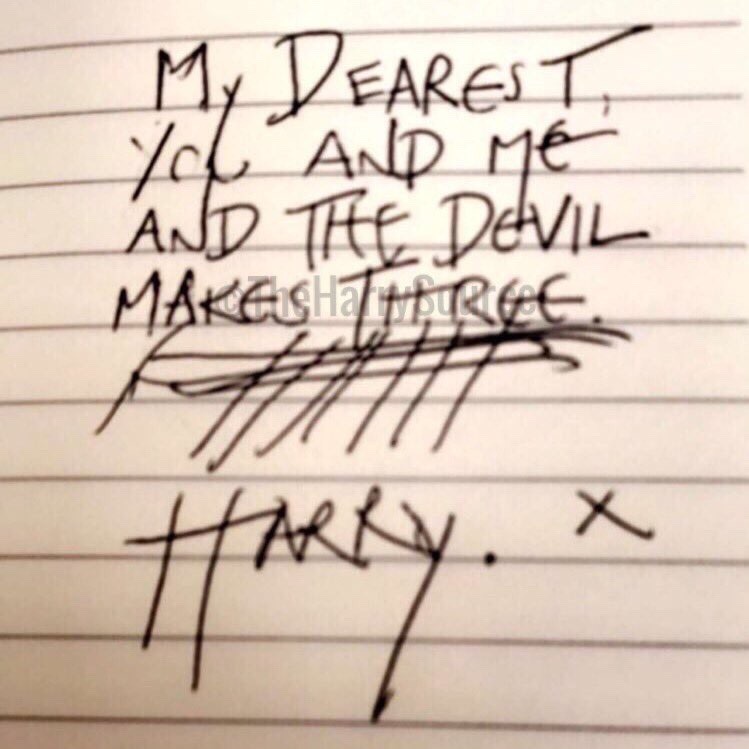 My DEAREST,
YOU AND ME
AND THE DEVIL
MAKES THREE.
©TheHarrySource
HARRY. x